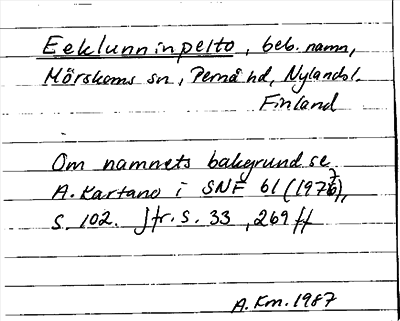 Eeklunninpelto, beb. namn,
Mörskoms sn, Pernå hd, Nylands l.
Finland
Om namnets bakgrund se
A. Kartano i SNF 61 (1976),
s. 102. Jfr. s. 33, 269 ff
A.Km. 1987